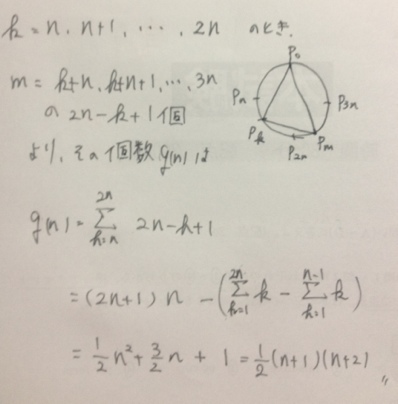 k = n, n+1, ・・・, 2n のとき.
P₀
m = k+n, k+n+1, ・・・, 3n
Pₙ
P₃ₙ
の 2n-k+1個
Pₖ
P₂ₙ
Pₘ
より, その個数 g(n) は
g(n) = \sum_{k=n}^{2n} 2n-k+1
= (2n+1) n - ( \sum_{k=1}^{2n} k - \sum_{k=1}^{n-1} k )
= \frac{1}{2} n² + \frac{3}{2} n + 1 = \frac{1}{2} (n+1)(n+2) 〃